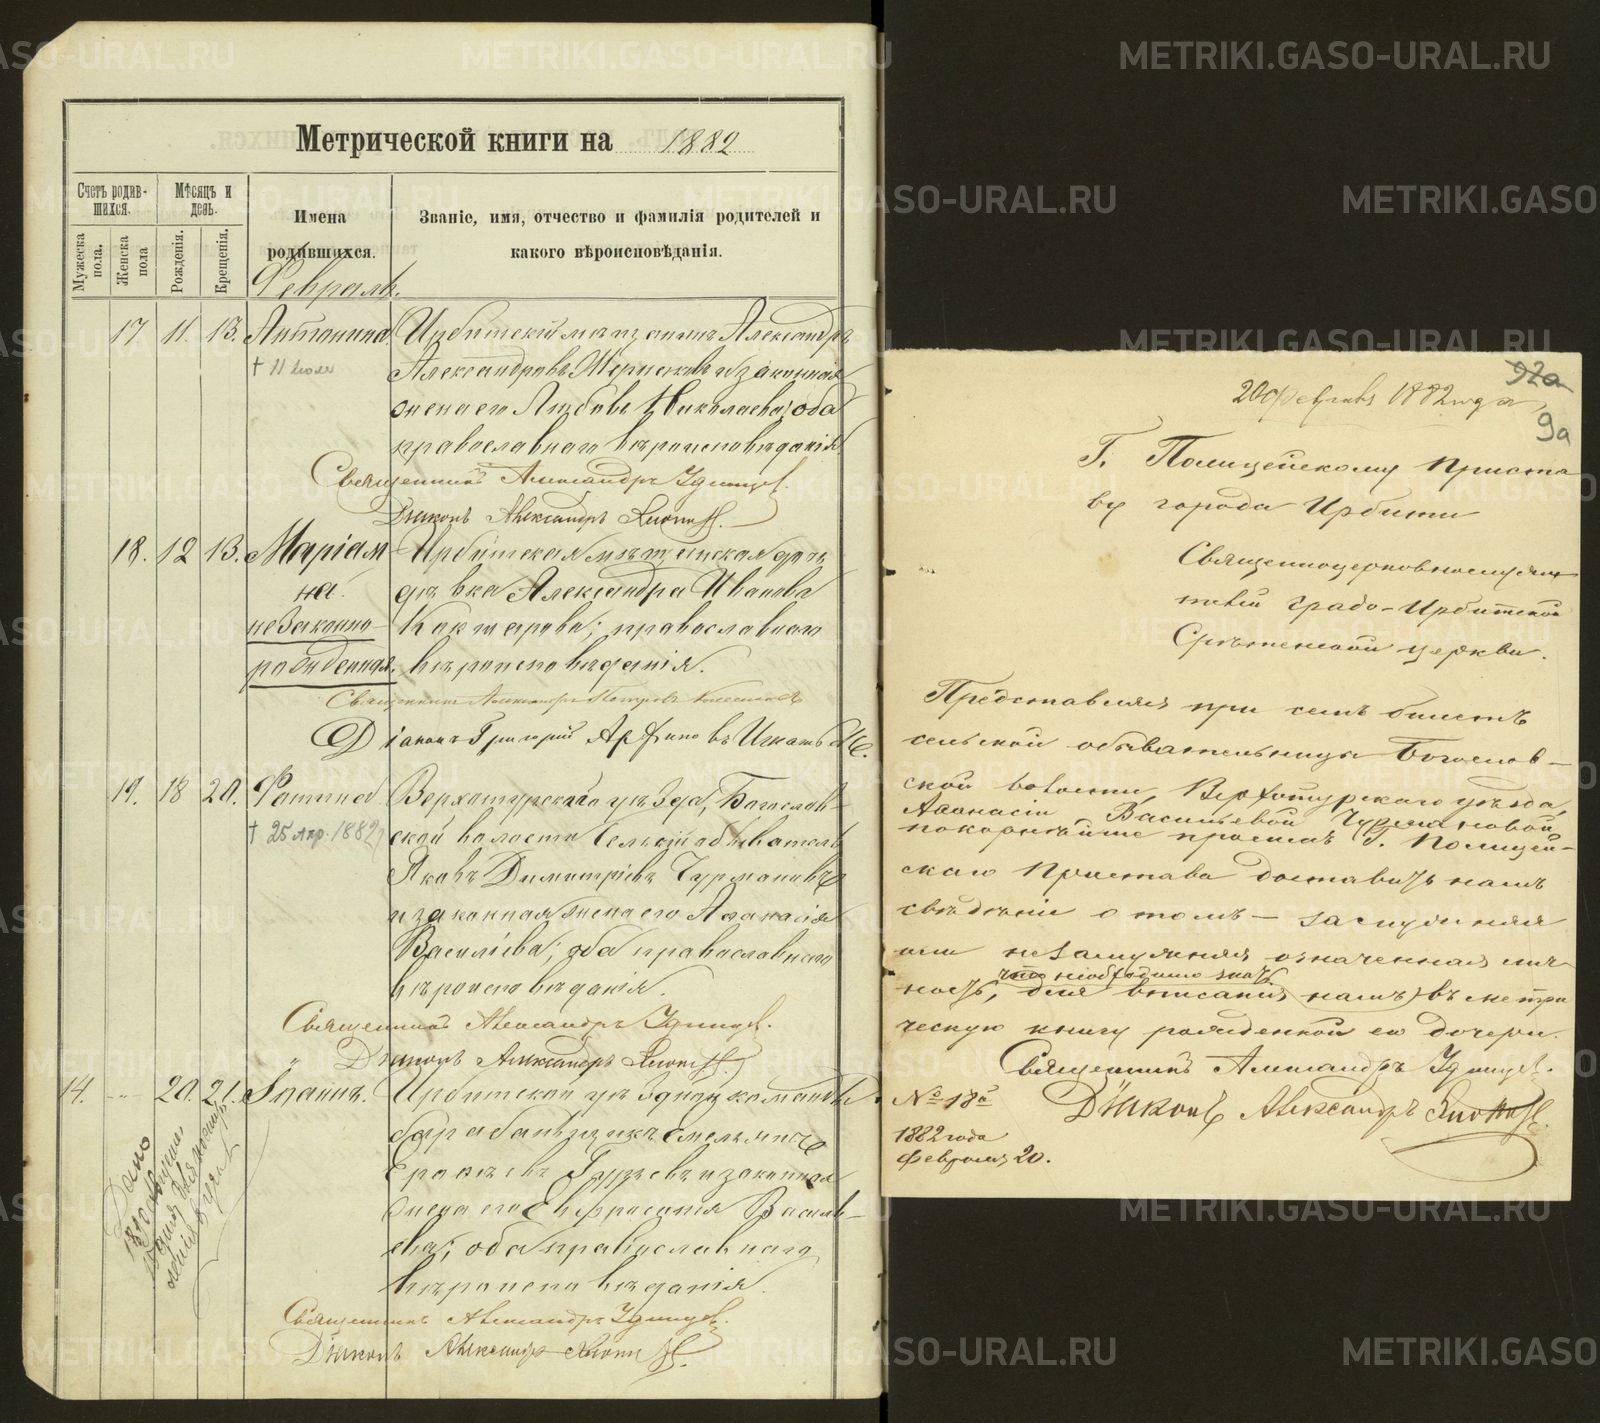 Метрической книги на 1882
Счетъ родив-
шихся.
Мѣсяцъ и
день.
Мужеска
пола.
Женска
пола
Рожденія.
Крещенія.
Имена
родившихся.
Званіе, имя, отчество и фамилія родителей и
какого вѣроисповѣданія.
Февраль.
17. 11. 13. Антонина. Ирбитскій мѣщанинъ Александръ
† 11 июля Александровъ и законная
жена его Любовь Николаева; оба
православнаго вѣроисповѣданія
Священникъ Александръ
Діаконъ Александръ
18. 12 13. Маріам- Ирбитская мѣщанская дочь
на. дѣвка Александра Иванова
незаконно- православнаго
рожденная. вѣроисповѣданія.
Священникъ Александръ Петровъ
Діаконъ Григорій
19. 18 20. Фотина Верхотурскаго уѣзда, Богослов-
† 25 апр. 1882 ской волости сельскій обыватель
Яковъ Димитріевъ Чурмановъ
и законная жена его Аѳанасія
Васильева; оба православнаго
вѣроисповѣданія.
Священникъ Александръ
„ Діаконъ Александръ
14. 20. 21. Іоаннъ. Ирбитской уѣздной команды
барабанщикъ Емельянъ
и законная
жена его Евфросинія Василь-
ева; оба православнаго
вѣроисповѣданія.
Священникъ Александръ
Діаконъ Александръ
Дано
92а
20 февраля 1882 года
9а
Г. Полицейскому Приста
ву города Ирбити
Священноцерковнослужи-
телей градо-Ирбитской
Срѣтенской церкви.
Представляя при семъ билетъ
сельской обывательницы Богослов-
ской волости, Верхотурскаго уѣзда,
Аѳанасіи Васильевой Чурмановой,
покорнѣйше просимъ Г. Полицей-
скаго Пристава доставить намъ
свѣдѣніе о томъ – замужняя
или незамужняя означенная лич-
что необходимо знать
ность, для вписанія намъ въ метри
ческую книгу рожденной ею дочери.
Священникъ Александръ
№ 18й Діаконъ Александръ
1882 года
Февраля 20.
METRIKI.GASO-URAL.RU